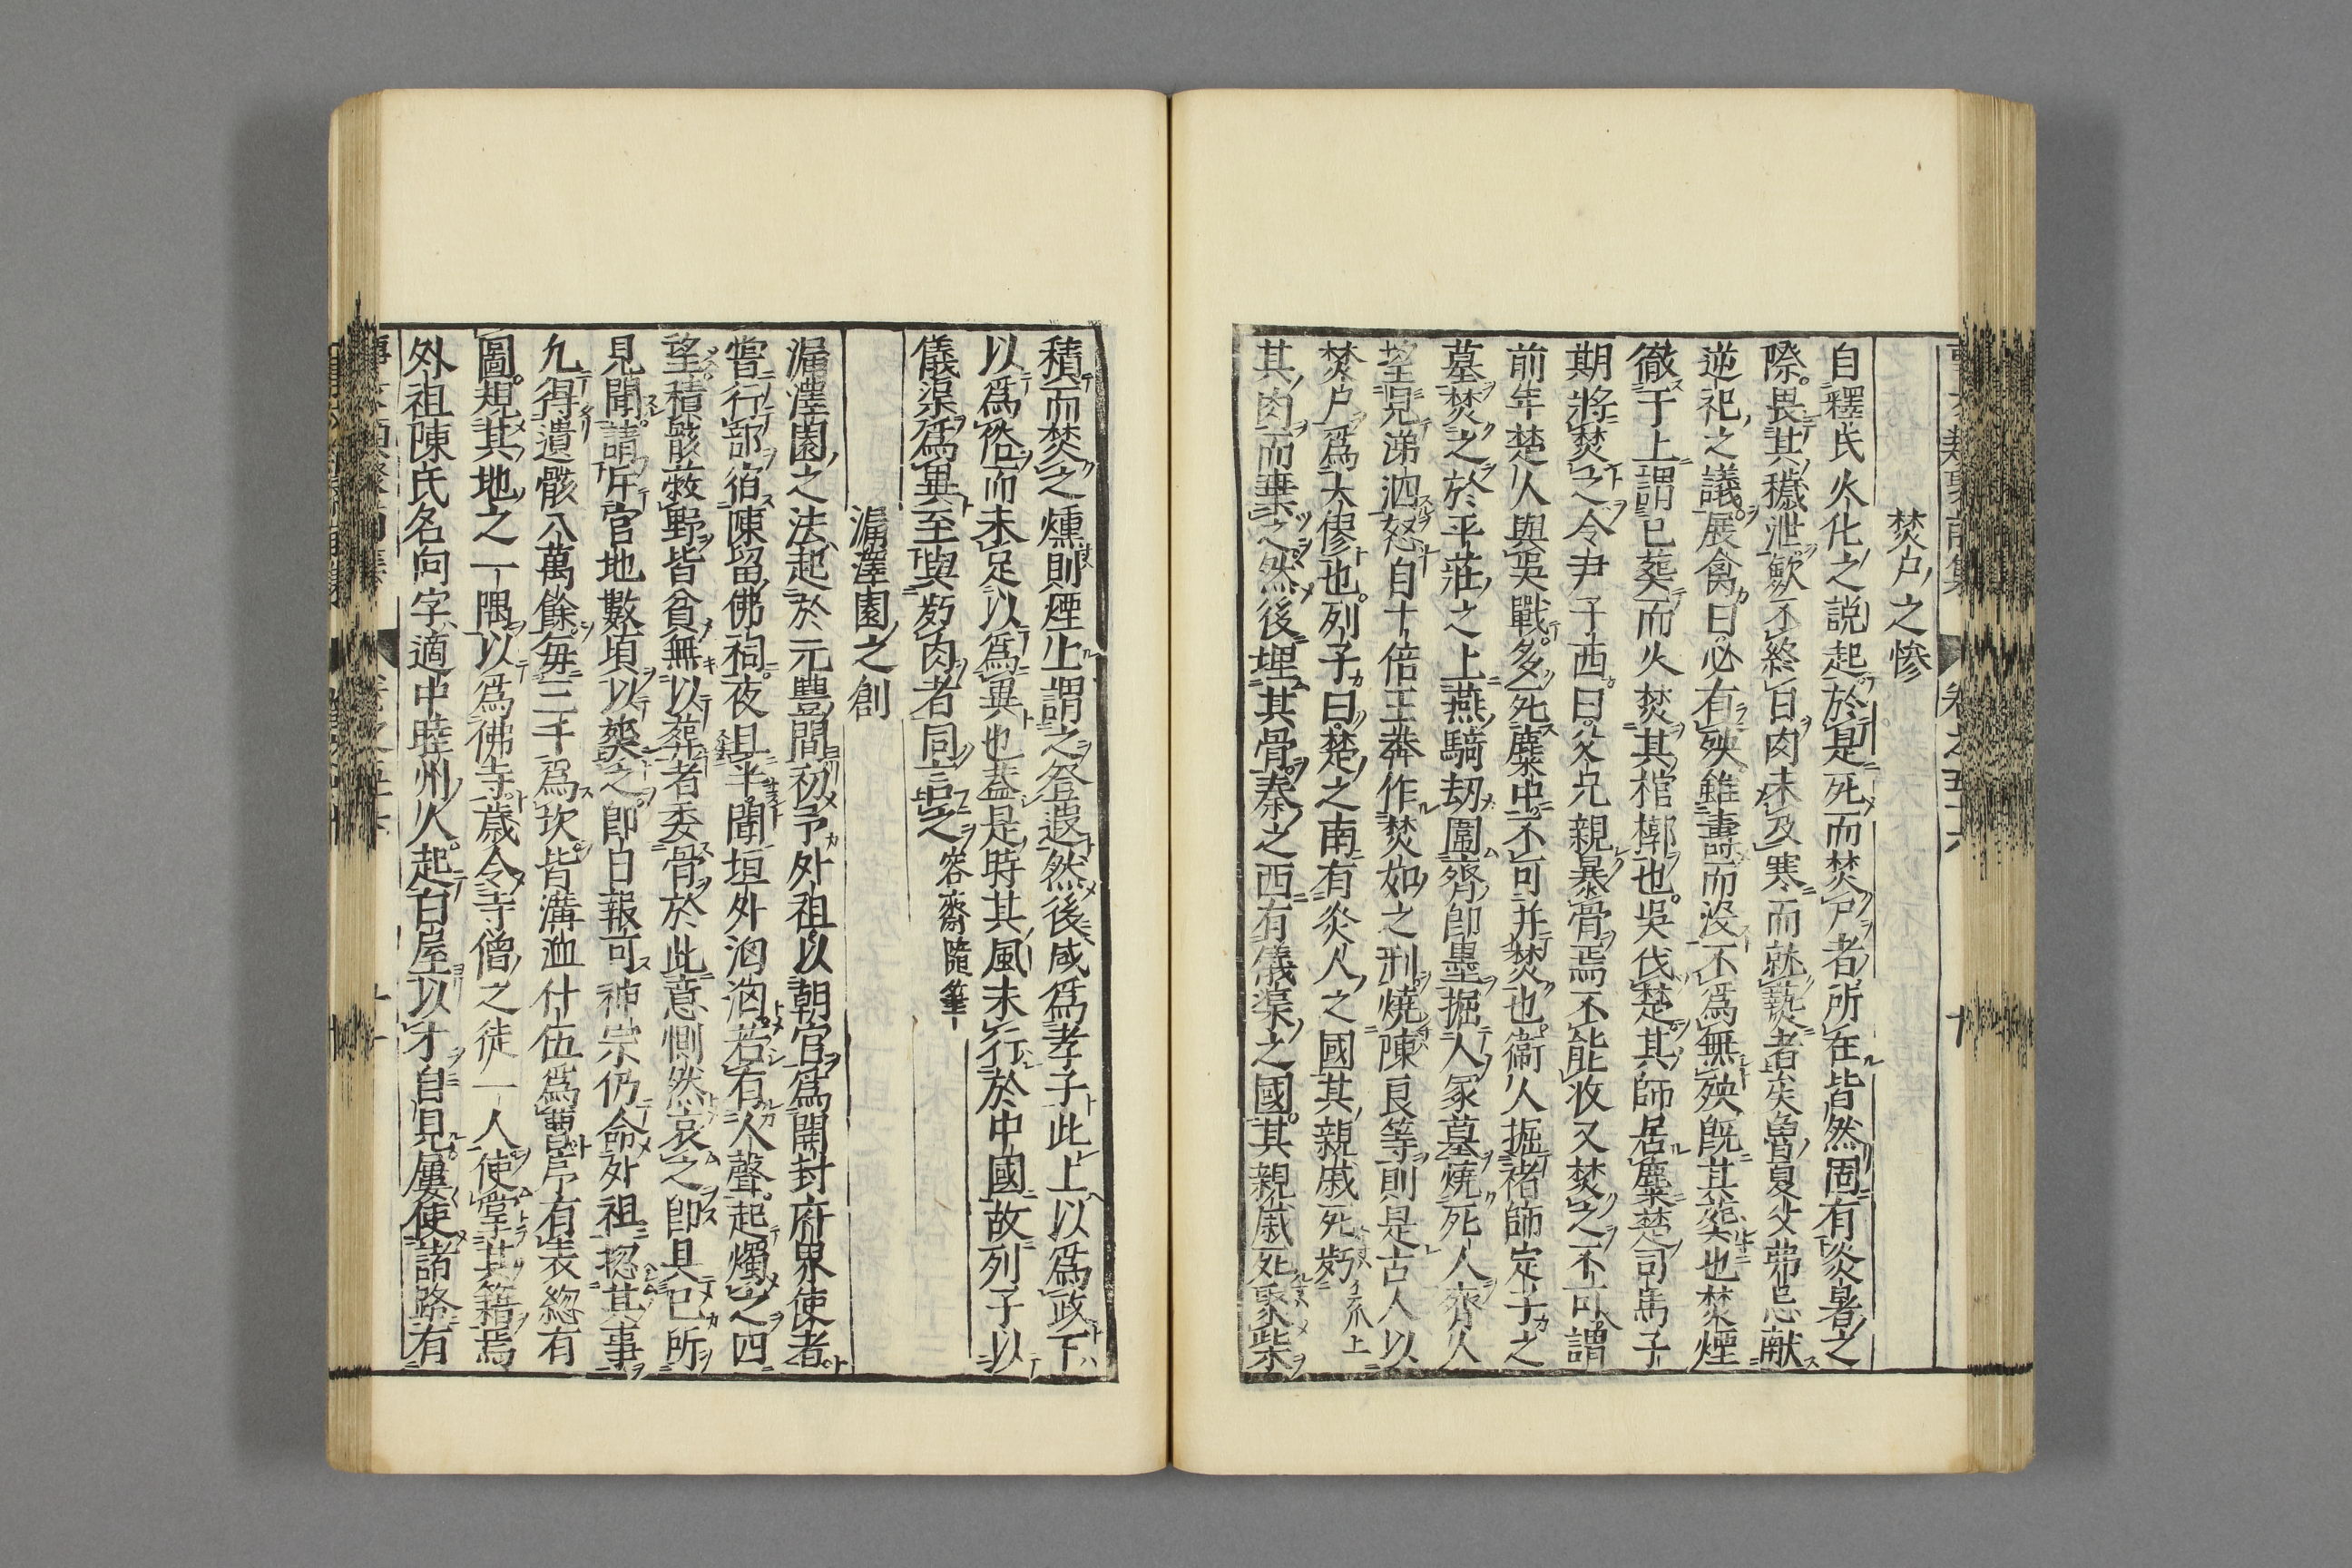 焚尸之慘
自釋氏火化之説起於是死而焚尸者所在皆然固有炎暑之
際畏其穢泄歛不終日肉未及寒而就爇者矣魯夏父弗忌献
逆祀之議展禽曰必有殃雖壽而没不爲無殃既其葬也焚煙
徹于上謂已葬而火焚其棺槨也吳伐楚其師居麇楚司馬子
期將焚之令尹子西曰父兄親暴骨焉不能收又焚之不可謂
前年楚人與吳戰多死麋中不可并焚也衞人掘褚師定子之
墓焚之於平莊之上燕騎刼圍齊卽墨掘人冢墓燒死人齊人
望見涕泗怒自十倍王莽作焚如之刑燒陳良等則是古人以
焚尸爲大僇也列子曰楚之南有炎人之國其親戚死㱙
其肉而棄之然後埋其骨秦之西有儀渠之國其親戚死聚柴
積而焚之燻則煙上謂之登遐然後成爲孝子此上以爲政下
以爲俗而未足以爲異也蓋是時其風未行於中國故列子以
儀渠爲異至與㱙肉者同言之 容齋隨筆
漏澤園之創
漏澤園之法起於元豐間初予外祖以朝官爲開封府界使者
嘗行部宿陳留佛祠夜且半聞垣外洶洶若有人聲起燭之四
望積骸蔽野皆貧無以葬者委骨於此意惻然哀之卽具已所
見聞請斥官地數頃以葬之卽日報可神宗仍命外祖揔其事
凡得遺骸八萬餘每三千爲坎皆溝洫什伍爲曹序有表緫有
圖規其地之一隅以爲佛寺歳令寺僧之徒一人使掌其籍焉
外祖陳氏名向字適中睦州人起白屋以才自見屢使諸路有